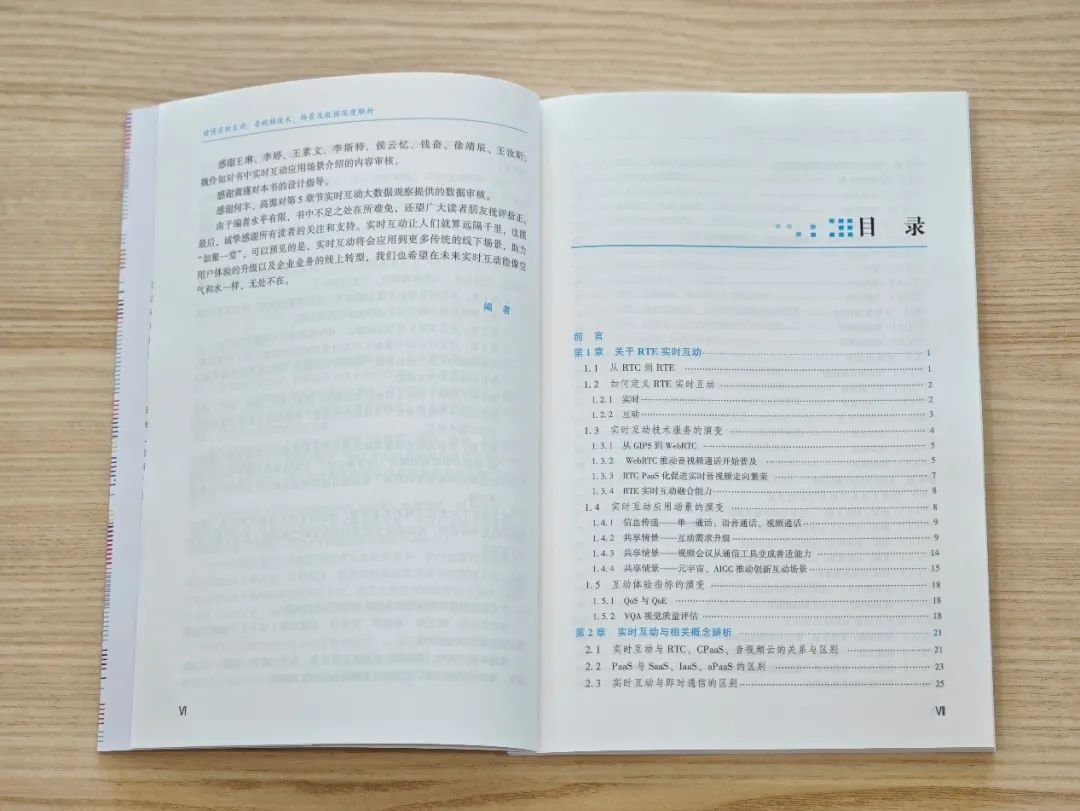 读懂实时互动：音视频技术、场景及数据深度解析
感谢王琳、李婷、王素文、李斯特、侯云忆、钱奋、徐靖辰、王汝昕、
魏伶如对书中实时互动应用场景介绍的内容审核。
感谢黄瑾对本书的设计指导。
感谢何丰、高源对第 5 章节实时互动大数据观察提供的数据审核。
由于编者水平有限，书中不足之处在所难免，还望广大读者朋友批评指正。
最后，诚挚感谢所有读者的关注和支持。实时互动让人们就算远隔千里，也能
“如聚一堂”，可以预见的是、实时互动将会应用到更多传统的线下场景，助力
用户体验的升级以及企业业务的线上转型，我们也希望在未来实时互动能像空
气和水一样，无处不在。
编 者
Ⅵ
目 录
前 言
第 1 章 关于 RTE 实时互动 1
1.1 从 RTC 到 RTE 1
1.2 如何定义 RTE 实时互动 2
1.2.1 实时 2
1.2.2 互动 3
1.3 实时互动技术服务的演变 4
1.3.1 从 GIPS 到 WebRTC 5
1.3.2 WebRTC 推动音视频通话开始普及 5
1.3.3 RTC PaaS 化促进实时音视频走向繁荣 7
1.3.4 RTE 实时互动融合能力 8
1.4 实时互动应用场景的演变 8
1.4.1 信息传递——单一通话：语音通话、视频通话 9
1.4.2 共享情景——互动需求升级 9
1.4.3 共享情景——视频会议从通信工具变成普适能力 14
1.4.4 共享情景——元宇宙、AIGC 推动创新互动场景 15
1.5 互动体验指标的演变 18
1.5.1 QoS 与 QoE 18
1.5.2 VQA 视觉质量评估 18
第 2 章 实时互动与相关概念辨析 21
2.1 实时互动与 RTC、CPaaS、音视频云的关系与区别 21
2.2 PaaS 与 SaaS、IaaS、aPaaS 的区别 23
2.3 实时互动与即时通信的区别 25
Ⅶ